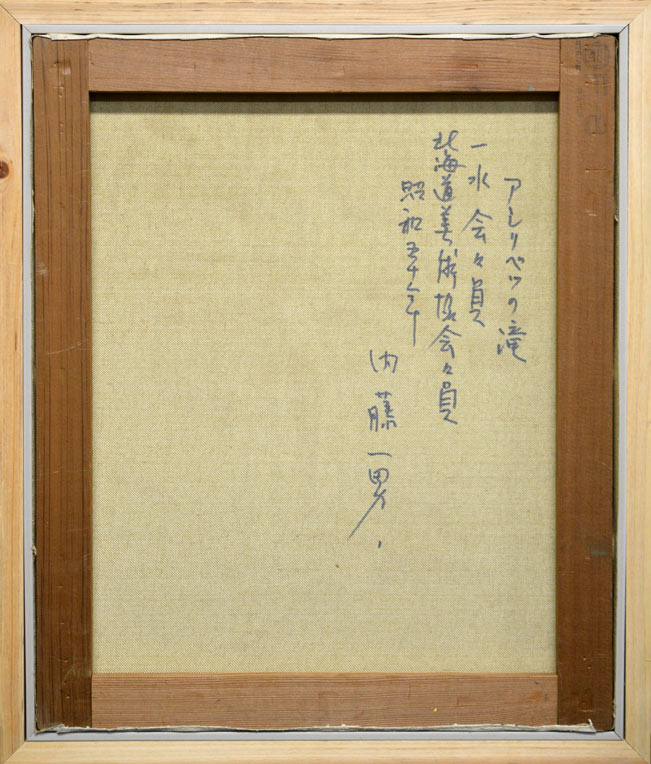 アシリベツの滝
一水会々員
北海道美術協会々員
昭和五十年
内藤一男